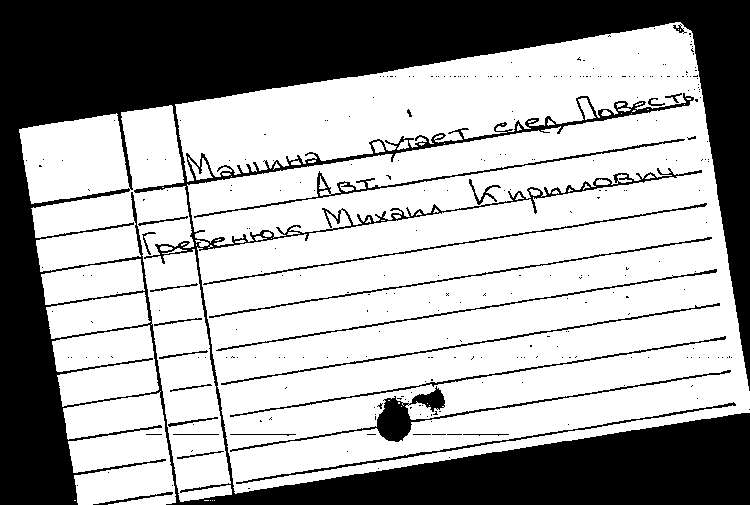 Машина путает след, Повесть.
Авт.:
Гребенюк, Михаил Кириллович